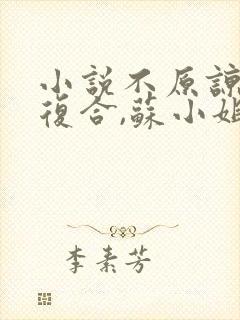 小說不原諒
復合,蘇小姐
李素芳